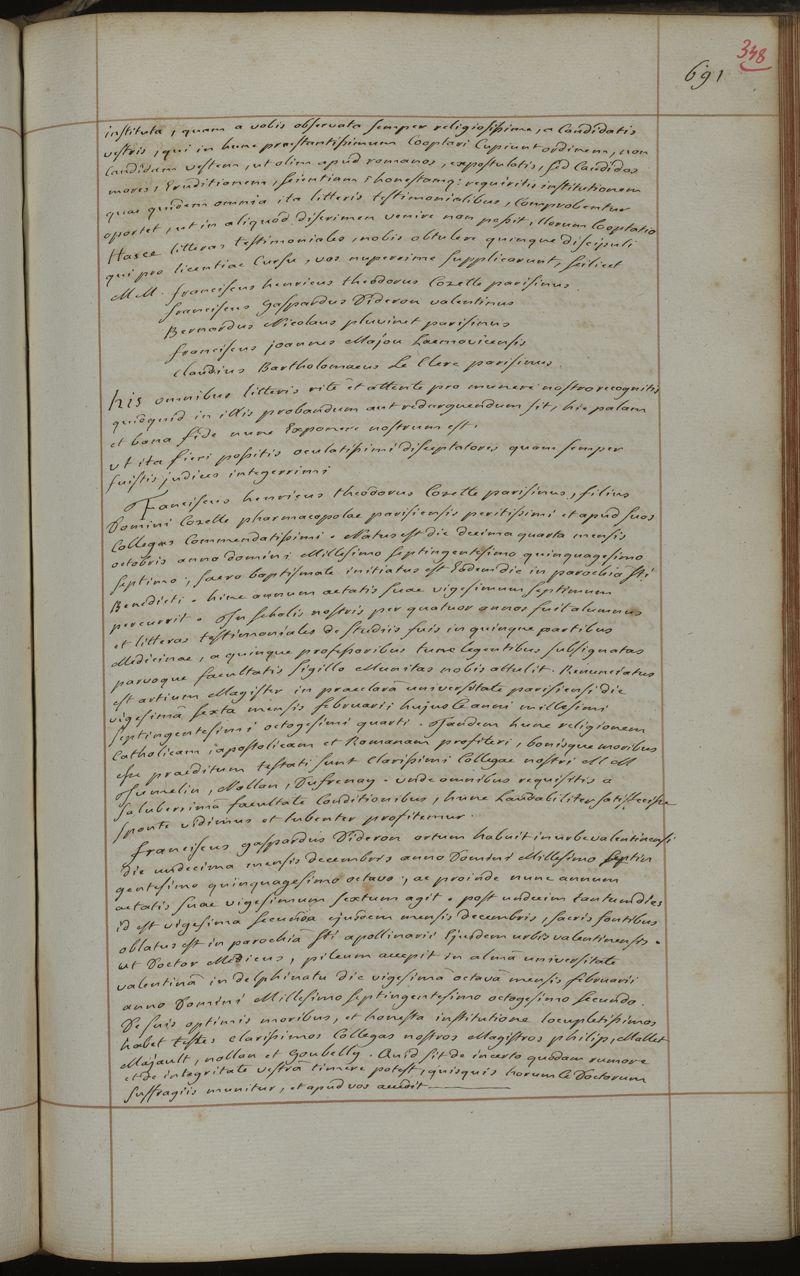 348
691
instituta, quam a vobis observata semper religiosissime, a Candidatis
vestris, qui in hunc praestantissimum Cooptari Cupiunt ordinem, non
Candidam vestem, ut olim apud romanos, expostulatis, sed Candidos
mores, Eruditionem, scientiam, honestamq: requiritis institutionem
quae quidem omnia ita litteris testimonialibus, Comprobentur
oportet, ut in aliquod discrimen venire non possit, illorum Cooptatio
Hasce litteras testimoniales, nobis obtulere quinque discipuli
qui pro licentiae Cursu, vos nuperrime supplicarunt, scilicet
M M. franciscus henricus theodorus Cozette parisinus.
franciscus Gaspardus Dideron valentinus
Bernardus Nicolaus pluvinet parisinus
franciscus joannes Majou
Claudius Bartholomaeus Le Clerc parisinus.
his omnibus litteris ritè et attentè pro munere nostro recognitis
quidquid in illis probandum aut redarguendum sit, hic palam
et bona fide nunc Exponere nostrum est.
ut ita fieri possitis oculatissimi disceptatores quam semper
fuistis judices integerrimi
Franciscus henricus theodorus Cozette parisinus, filius
Domini Cozette pharmacopolae parisiensis peritissimi et apud suos
Collegas Commendatissimi. Natus est die decima quarta mensis
octobris anno domini Millesimo septingentesimo quinquagesimo
septimo, sacro baptismate initiatus est Eodem die in parochia sti
Benedicti. hinc annum aetatis suae vigesimum septimum
percurrit. In scholis nostris per quatuor annos fuit alumnus
et litteras testimoniales de studiis suis in quinque partibus
Medicinae, a quinque professoribus tunc legentibus subsignatas
parvoque facultatis sigillo Munitas nobis attulit. Renunciatus
est artium Magister in praeclarâ universitate parisiensi die
vigesimâ sexta mensis februarii hujusce anni millesimi
septingentesimi octogesimi quarti. Tandem hunc religionem
Catholicam, apostolicam et Romanam profiteri, bonisque moribus
esse praeditum testati sunt Clarissimi Collegae nostri M M
Jumelin, Nollan, Dufrenay. unde omnibus requisitis a
saluberrima facultate Conditionibus, hunc Laudabiliter satisfecisse
sponte vidimus et lubenter profitemur.
franciscus gaspardus Dideron ortum habuit in urbe valentinensi
die undecima mensis decembris anno Domini Millesimo septin
gentesimo quinquagesimo octavo, ac proinde nunc annum
aetatis suae vigesimum sextum agit. post undecim tantum dies
id est vigesima secunda ejusdem mensis decembris, sacris fontibus
oblatus est in parochiâ sti apollinarii Ejusdem urbis valentinensis.
ut Doctor Medicus, pileum accepit in almâ universitate
valentinâ in delphinatu die vigesima octavâ mensis februarii
anno Domini Millesimo septingentesimo octogesimo secundo.
De suis optimis moribus, et honesta institutione locupletissimos
habet testes clarissimos Collegas nostros Magistros philip, Mallet
Majault, nollan et Goubelly. Quid sit de incerto quodam rumore
et de integritate vestrâ timere potest, quisquis horumce Doctorum
suffragiis munitur, et apud vos accedit